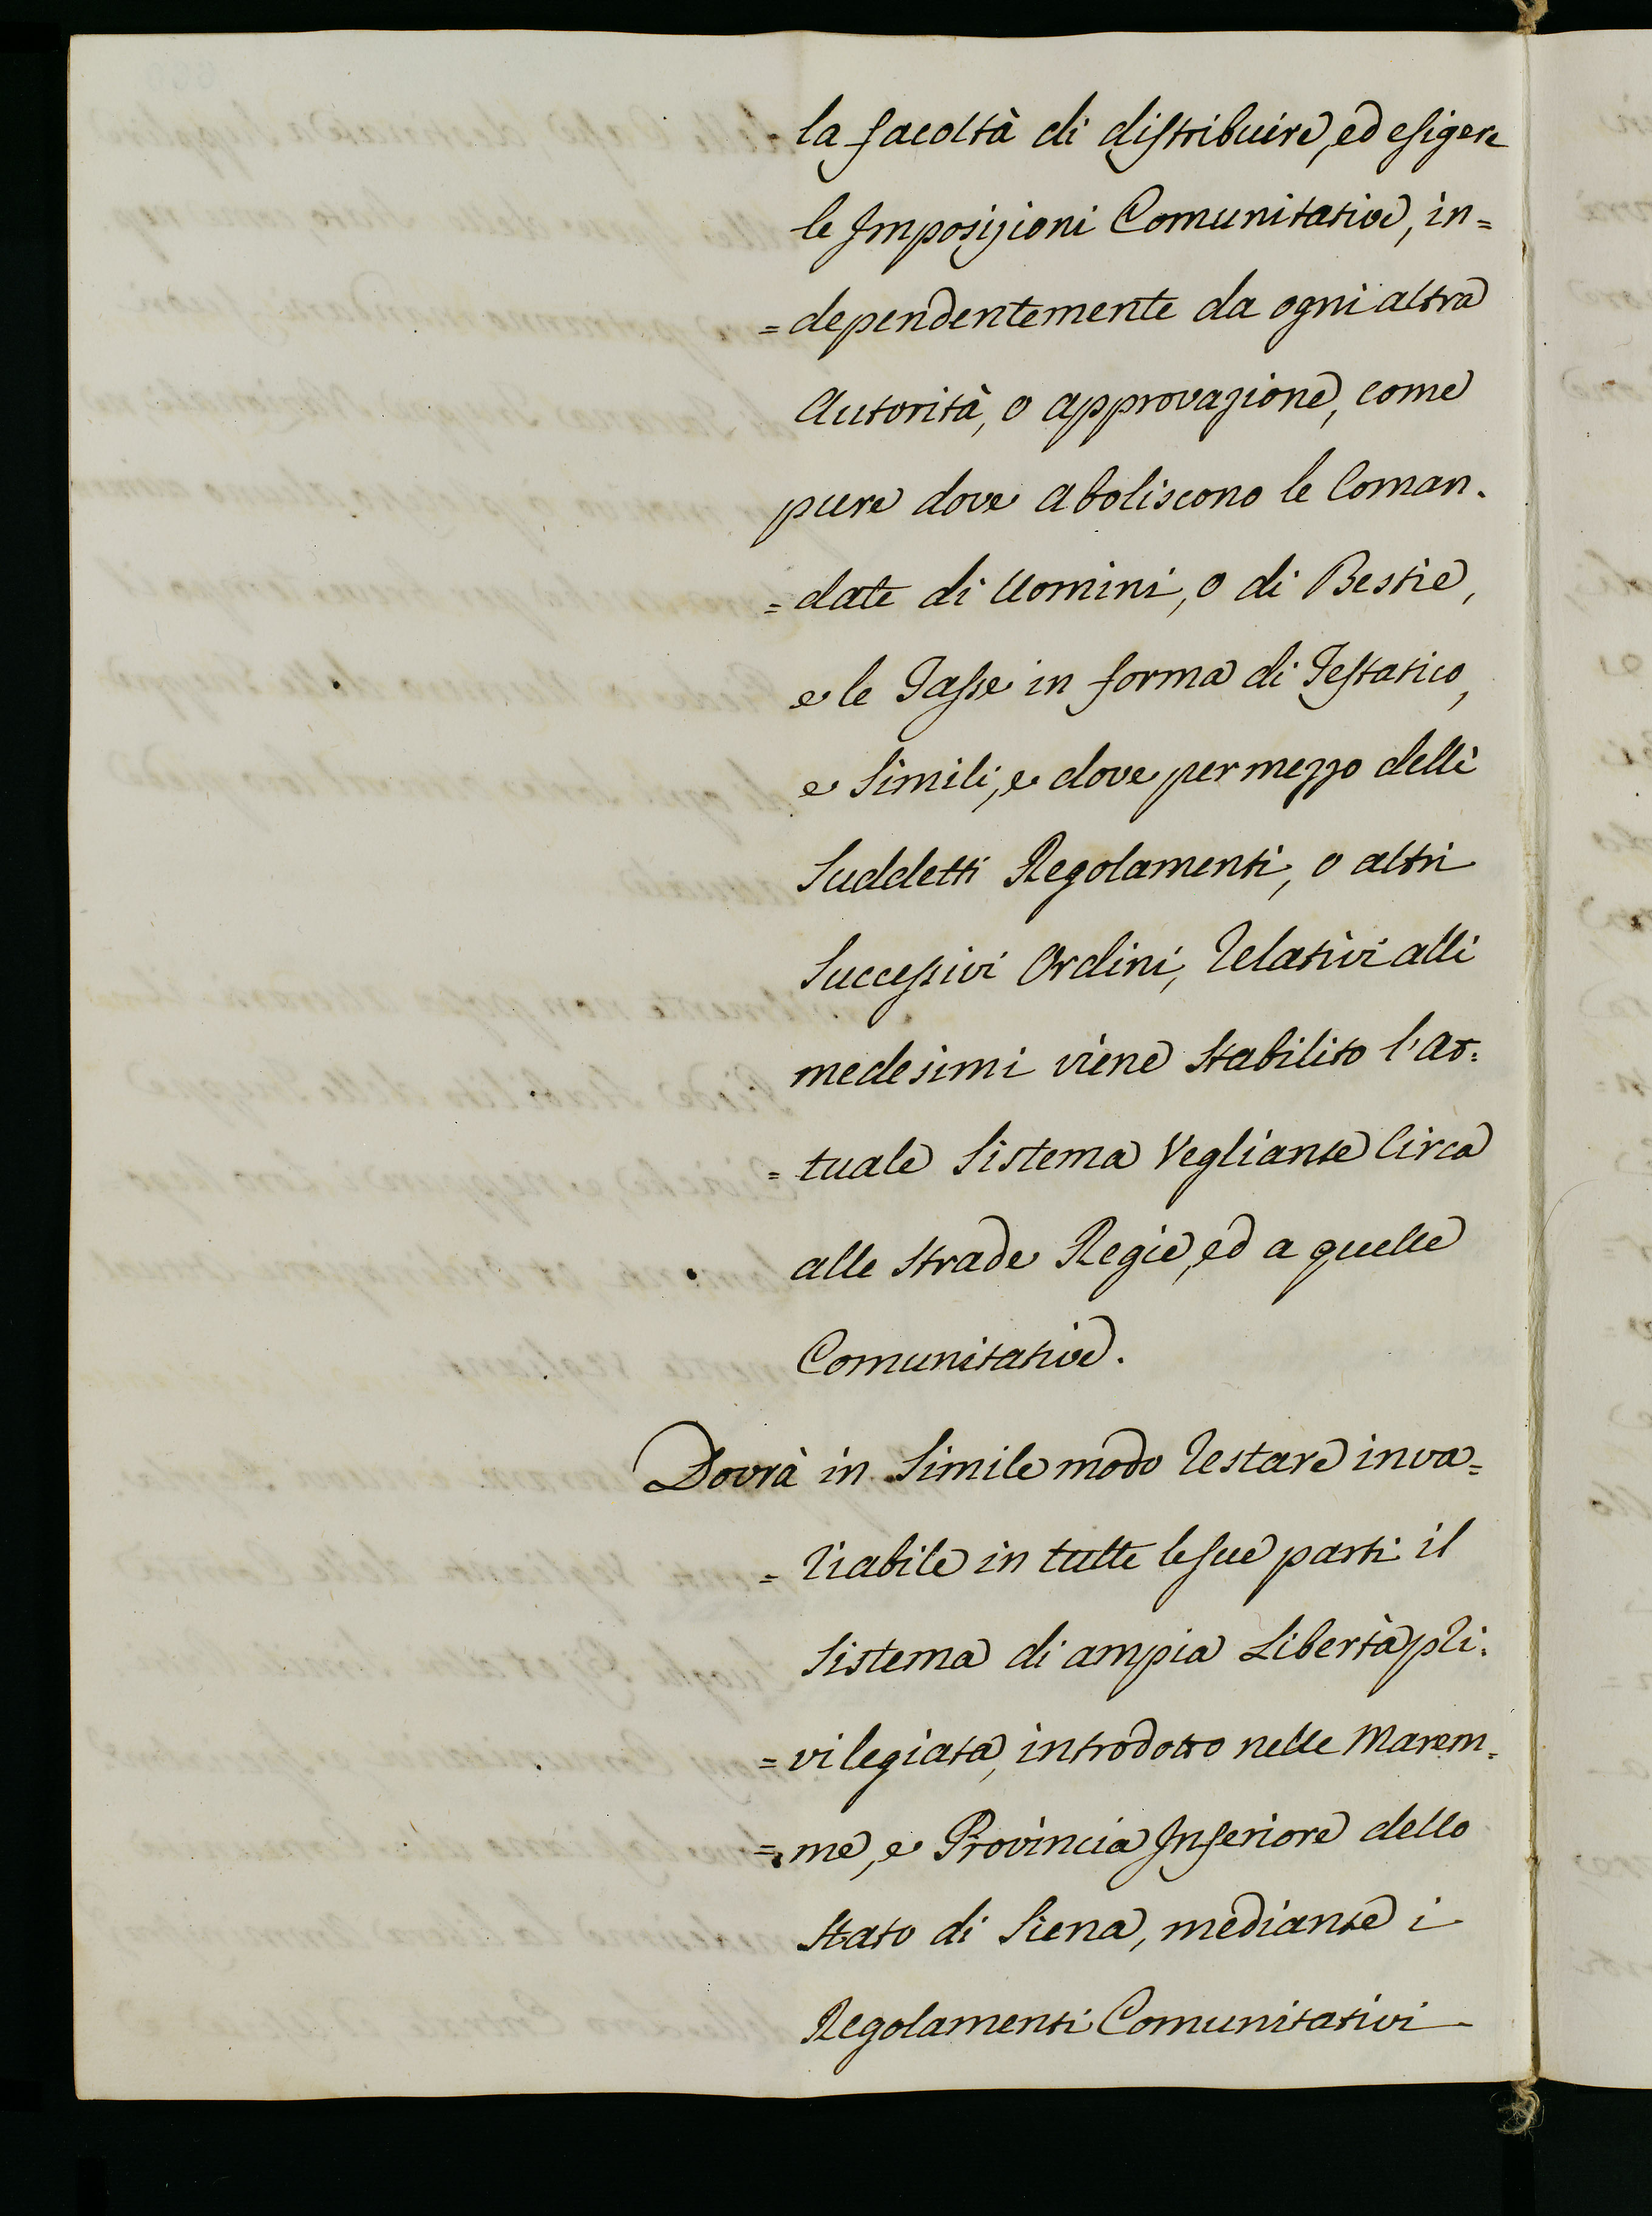 la facoltà di distribuire, ed esigere
le Imposizioni Comunitative, in=
=dependentemente da ogni altra
Autorità, o approvazione, come
pure dove aboliscono le Coman=
=date di Uomini, o di Bestie,
e le Tasse in forma di Testatico,
e simili, e dove per mezzo delli
Suddetti Regolamenti, o altri
Successivi Ordini, relativi alli
medesimi viene stabilito l'at=
=tuale Sistema Vegliante Circa
alle Strade Regie, ed a quelle
Comunitative.
Dovrà in Simile modo restare inva=
=riabile in tutte le sue parti il
Sistema di ampia Libertà pri=
=vilegiata, introdotto nelle Marem=
=me, e Provincia Inferiore dello
Stato di Siena, mediante i
Regolamenti Comunitativi